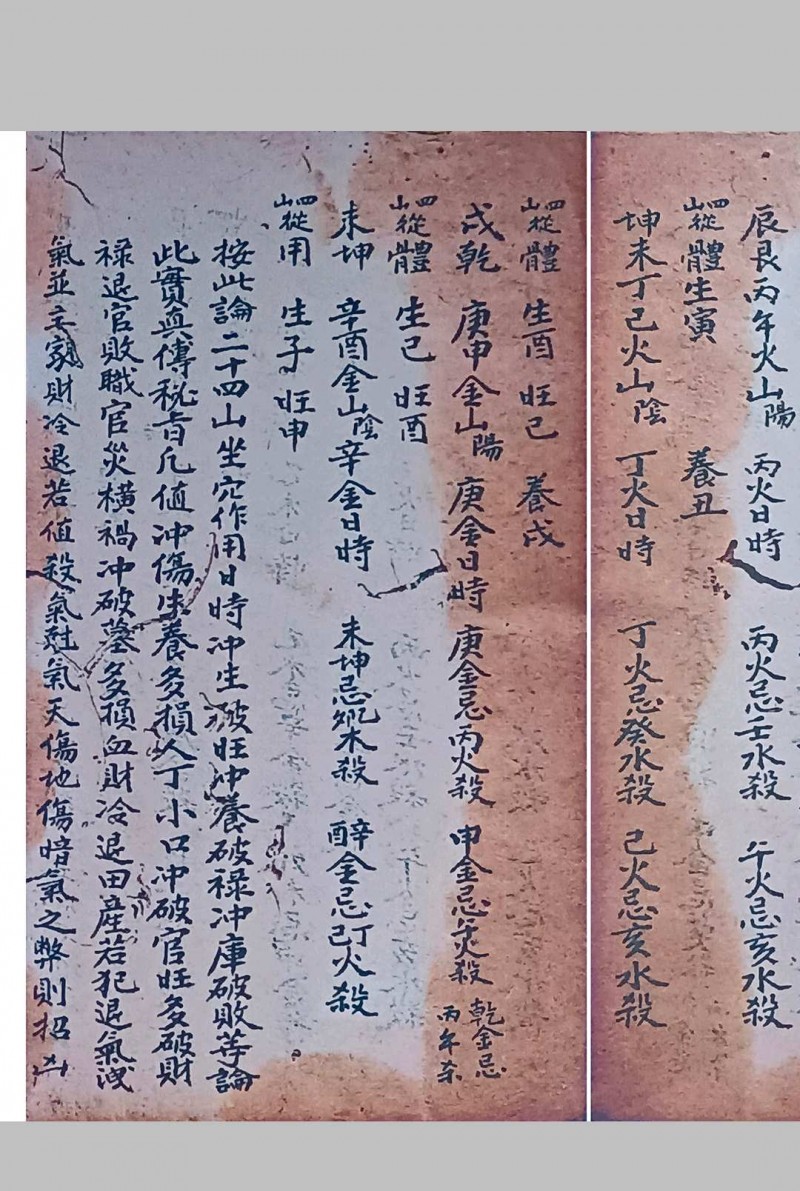 辰艮丙午火山陽 丙火日時 丙火忌壬水殺 午火忌亥水殺
四山從體生寅 養丑
坤未丁己火山陰 丁火日時 丁火忌癸水殺 己火忌亥水殺
四山從體 生酉 旺巳 養戌
戌乾 庚申金山陽 庚金日時 庚金忌丙火殺 申金忌午火殺 乾金忌丙午杀
四山從體 生巳 旺酉
未坤 辛酉金山陰 辛金日時 未坤忌 木殺 辛金忌丁火殺
四山從用 生子 旺申
按此論二十四山坐穴作用日時冲生破旺冲養破祿冲庫破敗等論
此實真傳秘旨凡值冲傷生養多損人丁小口冲破官旺多破財
祿退官敗職官災橫禍冲破墓多損血財冷退田産若犯退氣洩
氣並主家財冷退若值殺氣尅氣天傷地傷暗氣之弊則招凶